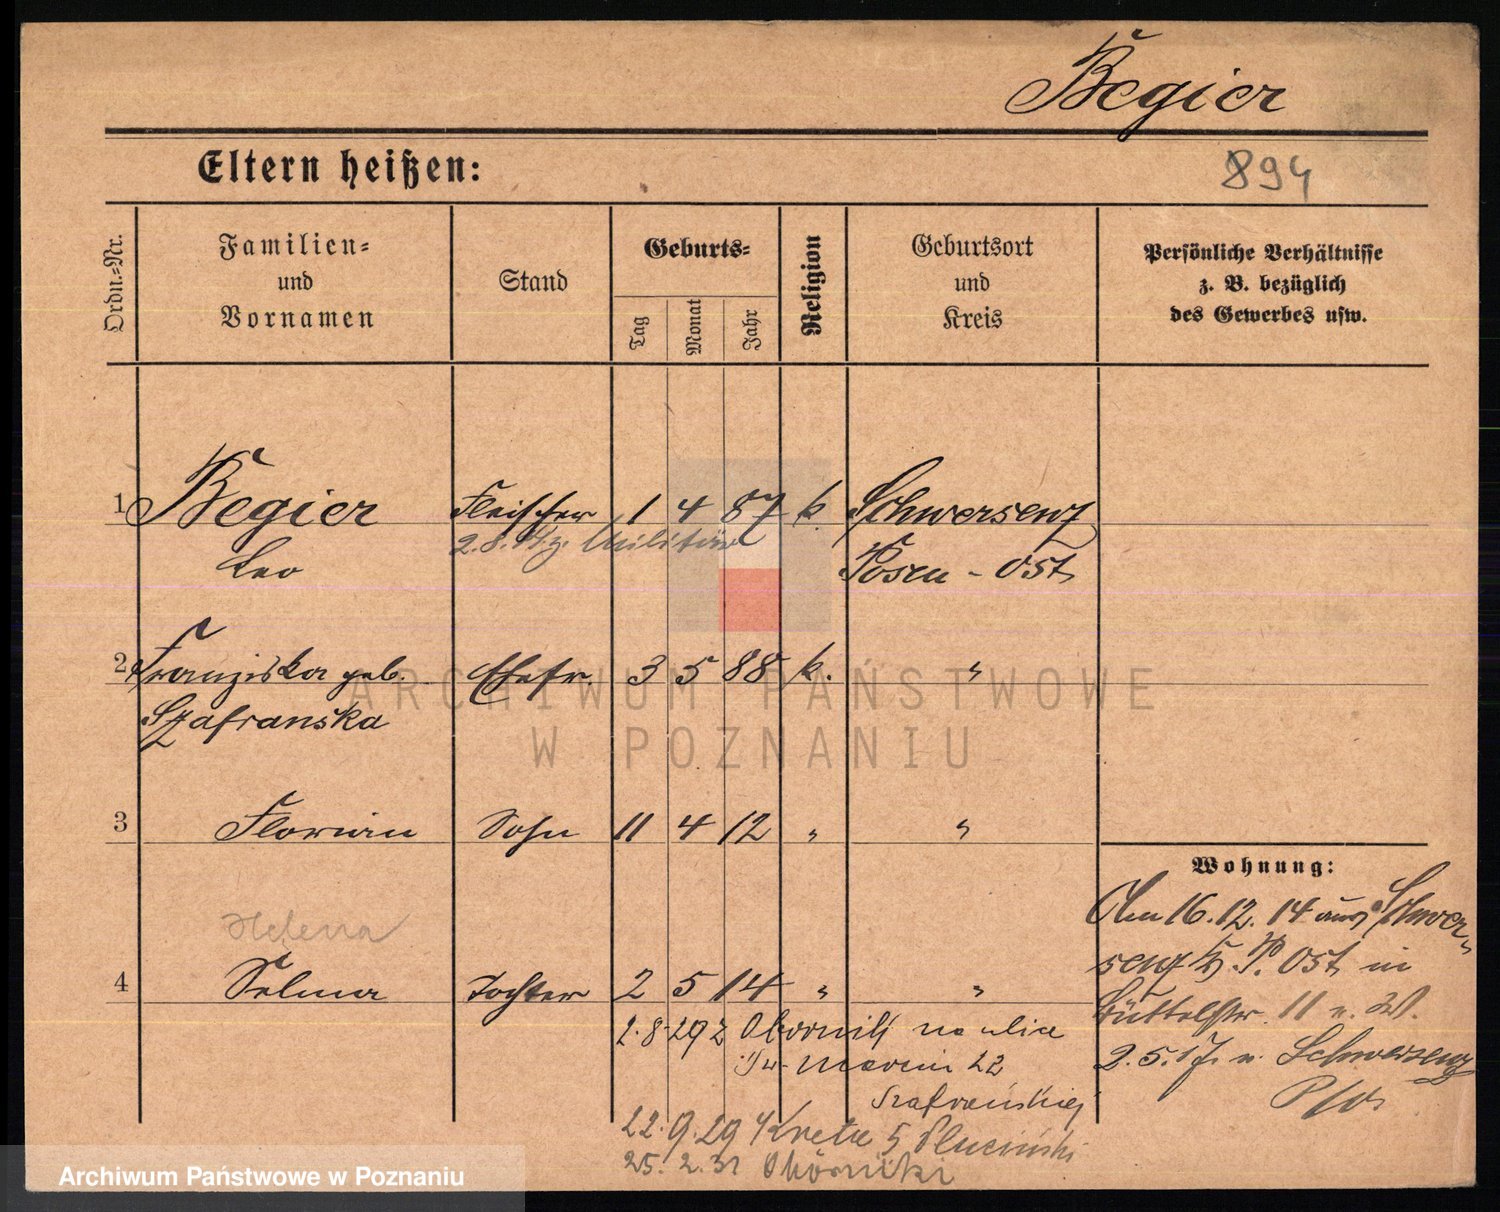 Begier
Eltern heißen:
894
Ordn.=Nr.
Familien=
und
Vornamen
Stand
Geburts=
Tag
Monat
Jahr
Religion
Geburtsort
und
Kreis
Persönliche Verhältnisse
z. B. bezüglich
des Gewerbes usw.
1 Begier Fleischer 1 4 87 k. Schwersenz
2.8.14 z. Militär
Leo Posen - Ost
2 Franziska geb. Ehefr. 3 5 88 k. "
Szafranska
3 Florian Sohn 11 4 12 " "
Helena
4 Selma Tochter 2 5 14 " "
Wohnung:
Am 16.12.14 aus Schwer-
senz Kr. P. Ost in
Büttelstr. 11 u. W.
2.5.17. n. Schwersenz
2.8.29 z Obornik na ulice
Św. Marcin 22
Szafrańskiej
22.9.29 Kreta 5 Pluciński
25.2.31 Oborniki
ARCHIWUM PAŃSTWOWE
W POZNANIU
Archiwum Państwowe w Poznaniu